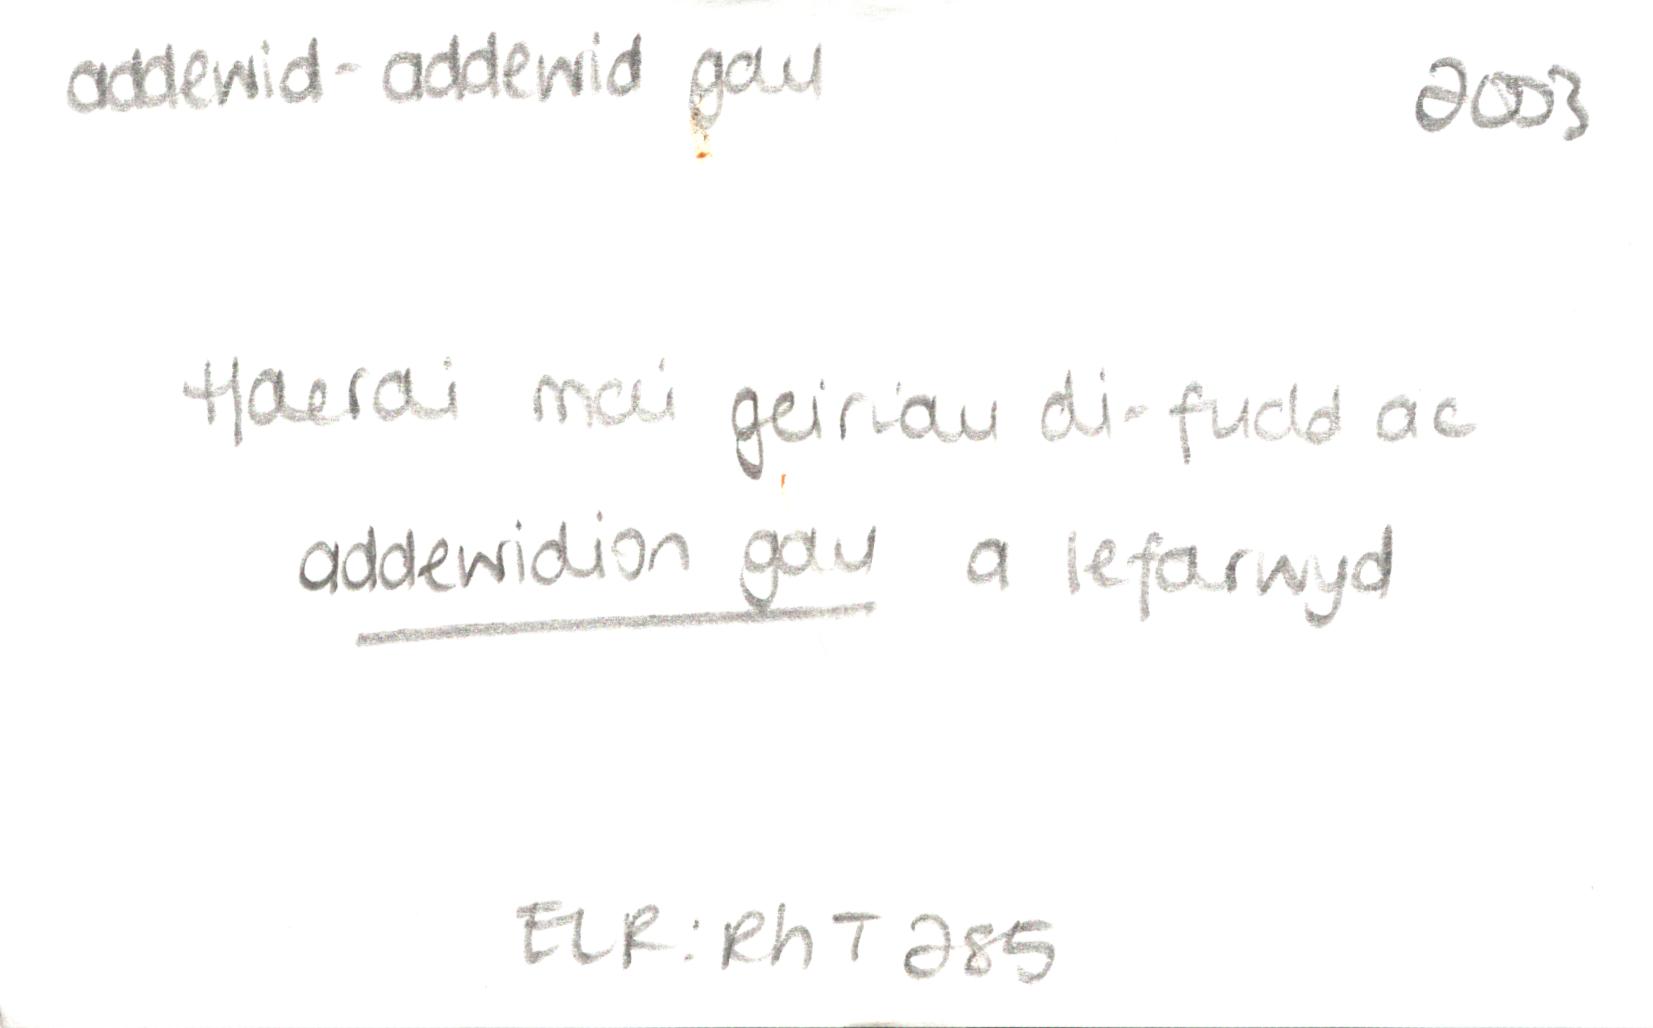 addewid-addewid gau 2003
Haerai mai geiriau di-fudd ac
addewidion gau a lefarwyd
ELR: RhT 285